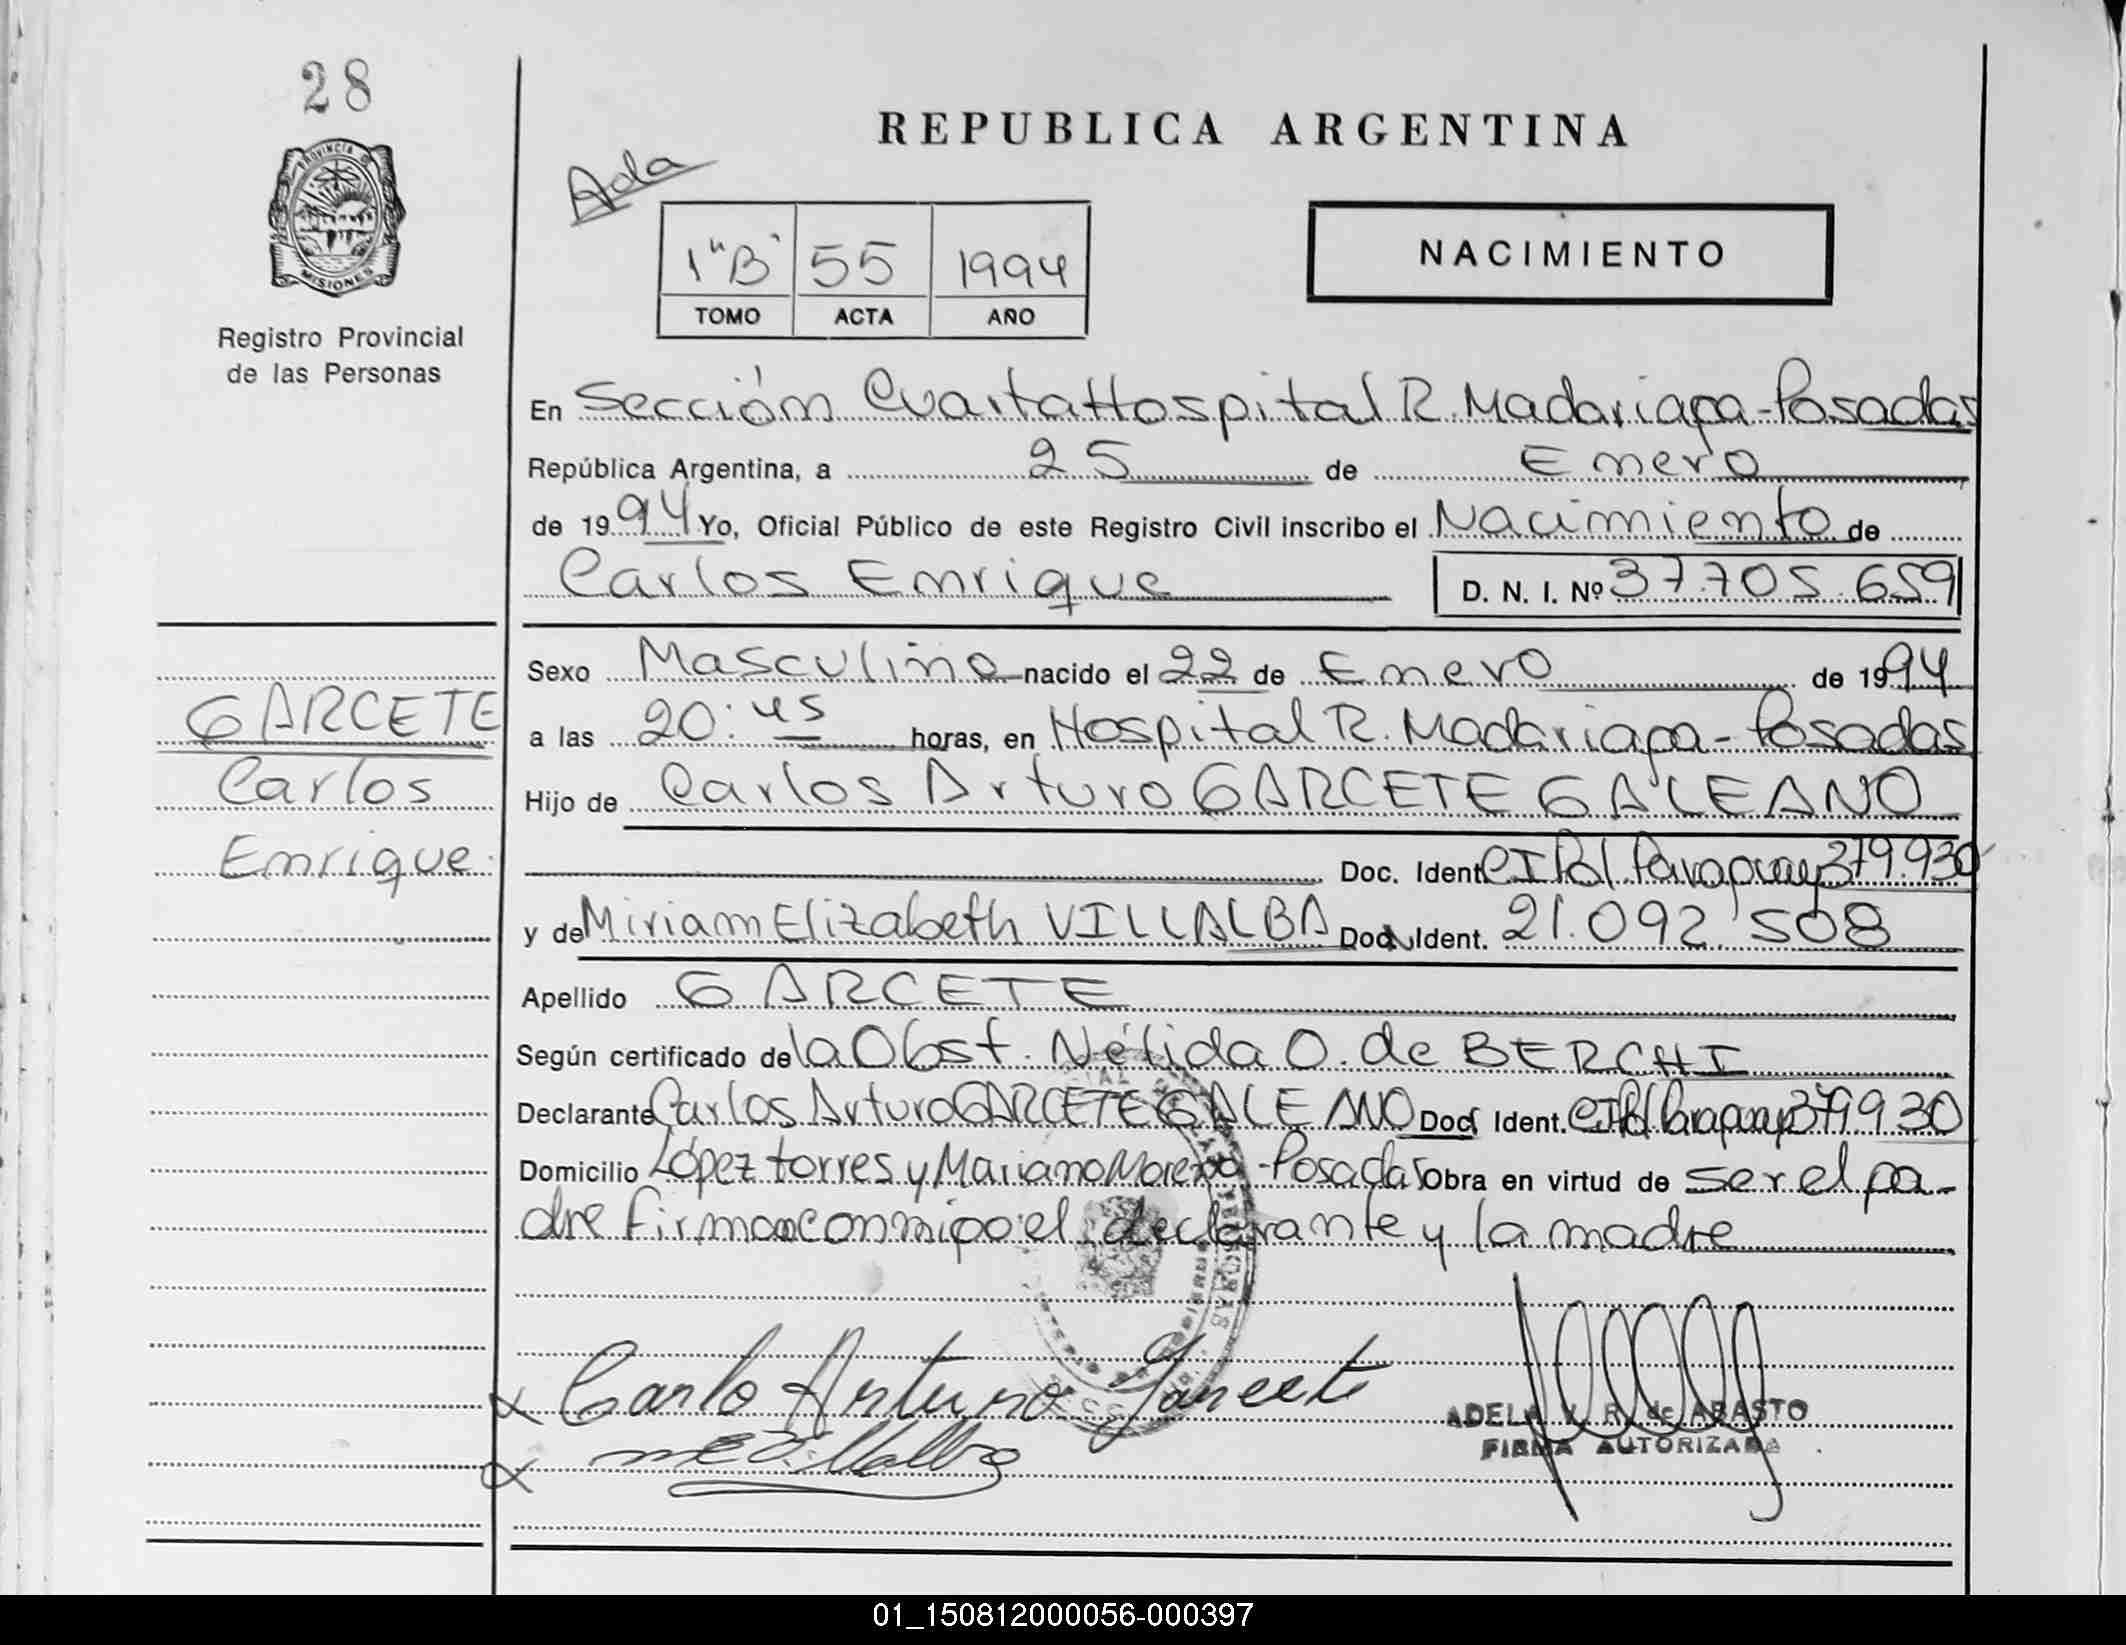 28
PROVINCIA D
MISIONES
Registro Provincial
de las Personas
REPUBLICA ARGENTINA
Ada
1 "B" 55 1994
TOMO ACTA AÑO
NACIMIENTO
En Sección Cuarta Hospital R. Madariaga - Posadas
República Argentina, a 25 de Enero
de 1994 Yo, Oficial Público de este Registro Civil inscribo el Nacimiento de
Carlos Enrique D. N. I. Nº 37.705.659
Sexo Masculino nacido el 22 de Enero de 1994
a las 20:45 horas, en Hospital R. Madariaga - Posadas
Hijo de Carlos Arturo GARCETE GALEANO
Doc. Ident. CI Pol Paraguay 379.930
y de Miriam Elizabeth VILLALBA Doc. Ident. 21.092.508
Apellido GARCETE
Según certificado de la Obst. Nélida O. de BERCHI
Declarante Carlos Arturo GARCETE GALEANO Doc. Ident. CI Pol Paraguay 379930
Domicilio López torres y Mariano Moreno - Posadas Obra en virtud de ser el pa-
dre firman conmigo el declarante y la madre
GARCETE
Carlos
Enrique
Carlo Arturo Garcete
ME Villalba
ADELA V. R. de ABASTO
FIRMA AUTORIZADA
01_150812000056-000397